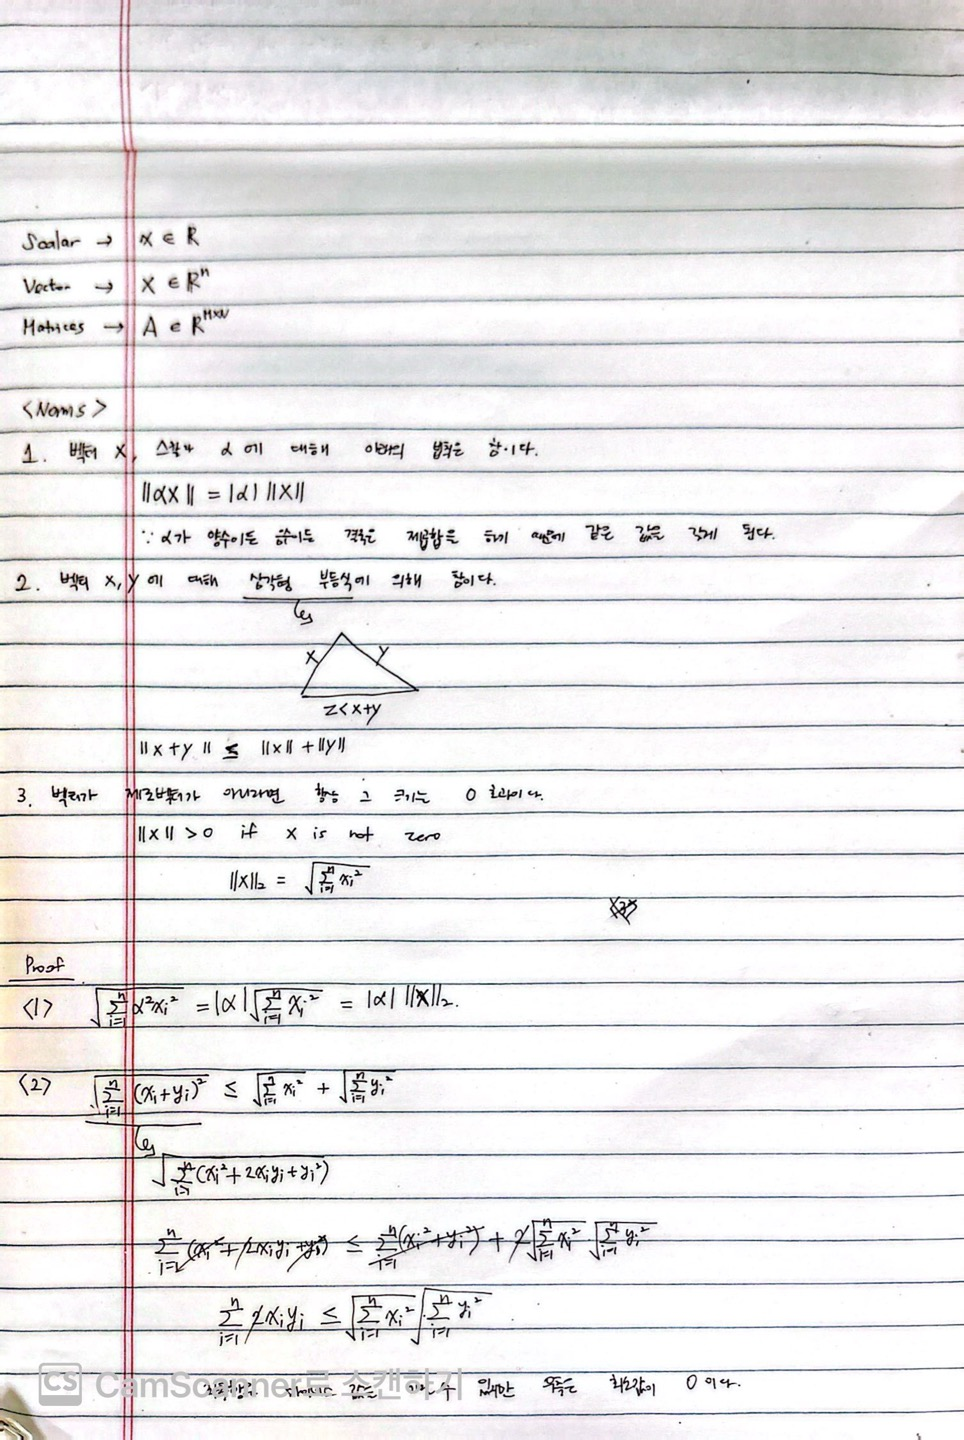 Scalar → x ∈ R
Vector → X ∈ Rⁿ
Matrices → A ∈ R^{M×N}
<Norms>
1. 벡터 X, 스칼라 α 에 대해 아래의 법칙은 참이다.
||αX|| = |α| ||X||
∵ α가 양수이든 음수이든 결국은 제곱합을 하기 때문에 같은 값을 갖게 된다.
2. 벡터 x, y 에 대해 삼각형 부등식에 의해 참이다.
x y
z < x+y
||x + y|| ≤ ||x|| + ||y||
3. 벡터가 제로벡터가 아니라면 항상 그 크기는 0 초과이다.
||X|| > 0 if x is not zero
||X||₂ = √(∑_{i=1}^{n} xᵢ²)
Proof
<1> √(∑_{i=1}^{n} α²xᵢ²) = |α| √(∑_{i=1}^{n} xᵢ²) = |α| ||X||₂.
<2> √(∑_{i=1}^{n} (xᵢ+yᵢ)²) ≤ √(∑_{i=1}^{n} xᵢ²) + √(∑_{i=1}^{n} yᵢ²)
√(∑_{i=1}^{n} (xᵢ² + 2xᵢyᵢ + yᵢ²))
∑_{i=1}^{n} (xᵢ² + 2xᵢyᵢ + yᵢ²) ≤ ∑_{i=1}^{n} (xᵢ² + yᵢ²) + 2 √(∑_{i=1}^{n} xᵢ²) √(∑_{i=1}^{n} yᵢ²)
∑_{i=1}^{n} 2xᵢyᵢ ≤ √(∑_{i=1}^{n} xᵢ²) √(∑_{i=1}^{n} yᵢ²)
값은 수 있지만 우측은 최소값이 0 이다.
CS CamScanner로 스캔하기